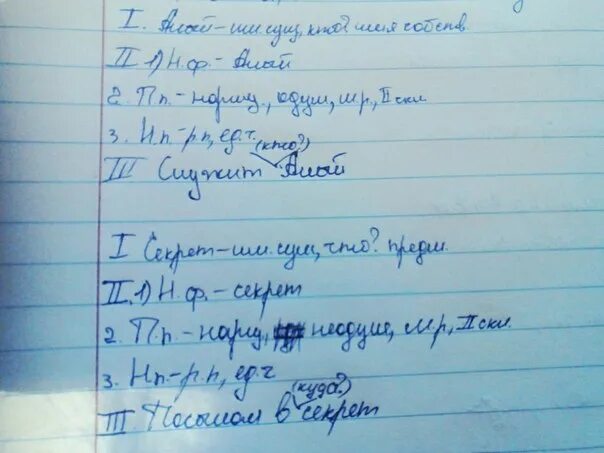 I. Алый – им. сущ, кто? имя собств.
II 1) Н.ф. – Алый
2. П.п. – нариц., одуш, м.р., II скл
3. Н.п. – р.п, ед.ч.
(кто?)
III Служит Алый
I Секрет – им. сущ, что? предм.
II. 1) Н.ф. – секрет
2. П.п. – нариц, неодуш, м.р., II скл.
3. Н.п. – р.п, ед.ч
(куда?)
III Посылом в секрет